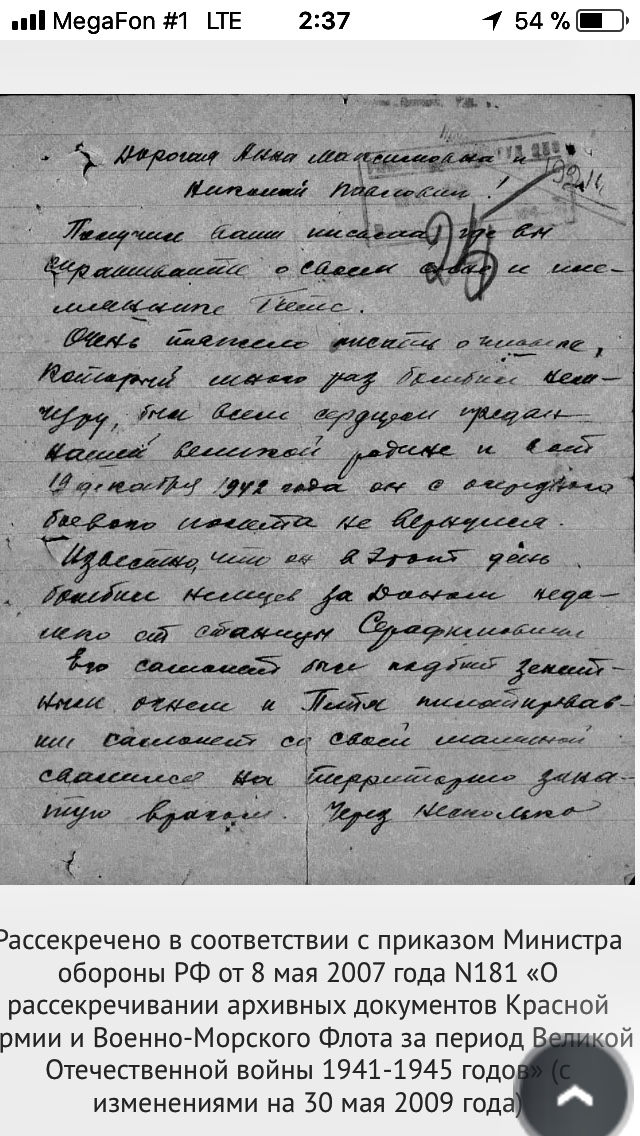 MegaFon #1 LTE 2:37 54 %
Дорогая Анна Максимовна и
Николай Павлович!
Получил ваши письма где вы
спрашиваете о своем сыне и пле-
мяннике Пете.
Очень тяжело писать о
который много раз бомбил нем-
чуру, был всем сердцем предан
нашей великой родине и вот
19 декабря 1942 года он с очередного
боевого полета не вернулся.
Известно, что он в этот день
бомбил немцев за Доном неда-
леко от станицы Серафимович
Его самолет был подбит зенит-
ным огнем и Петя пилотировав-
ший самолет со своей машиной
свалился на территорию заня-
тую врагом. Через несколько
Рассекречено в соответствии с приказом Министра
обороны РФ от 8 мая 2007 года N181 «О
рассекречивании архивных документов Красной
рмии и Военно-Морского Флота за период Великой
Отечественной войны 1941-1945 годов» (с
изменениями на 30 мая 2009 года)